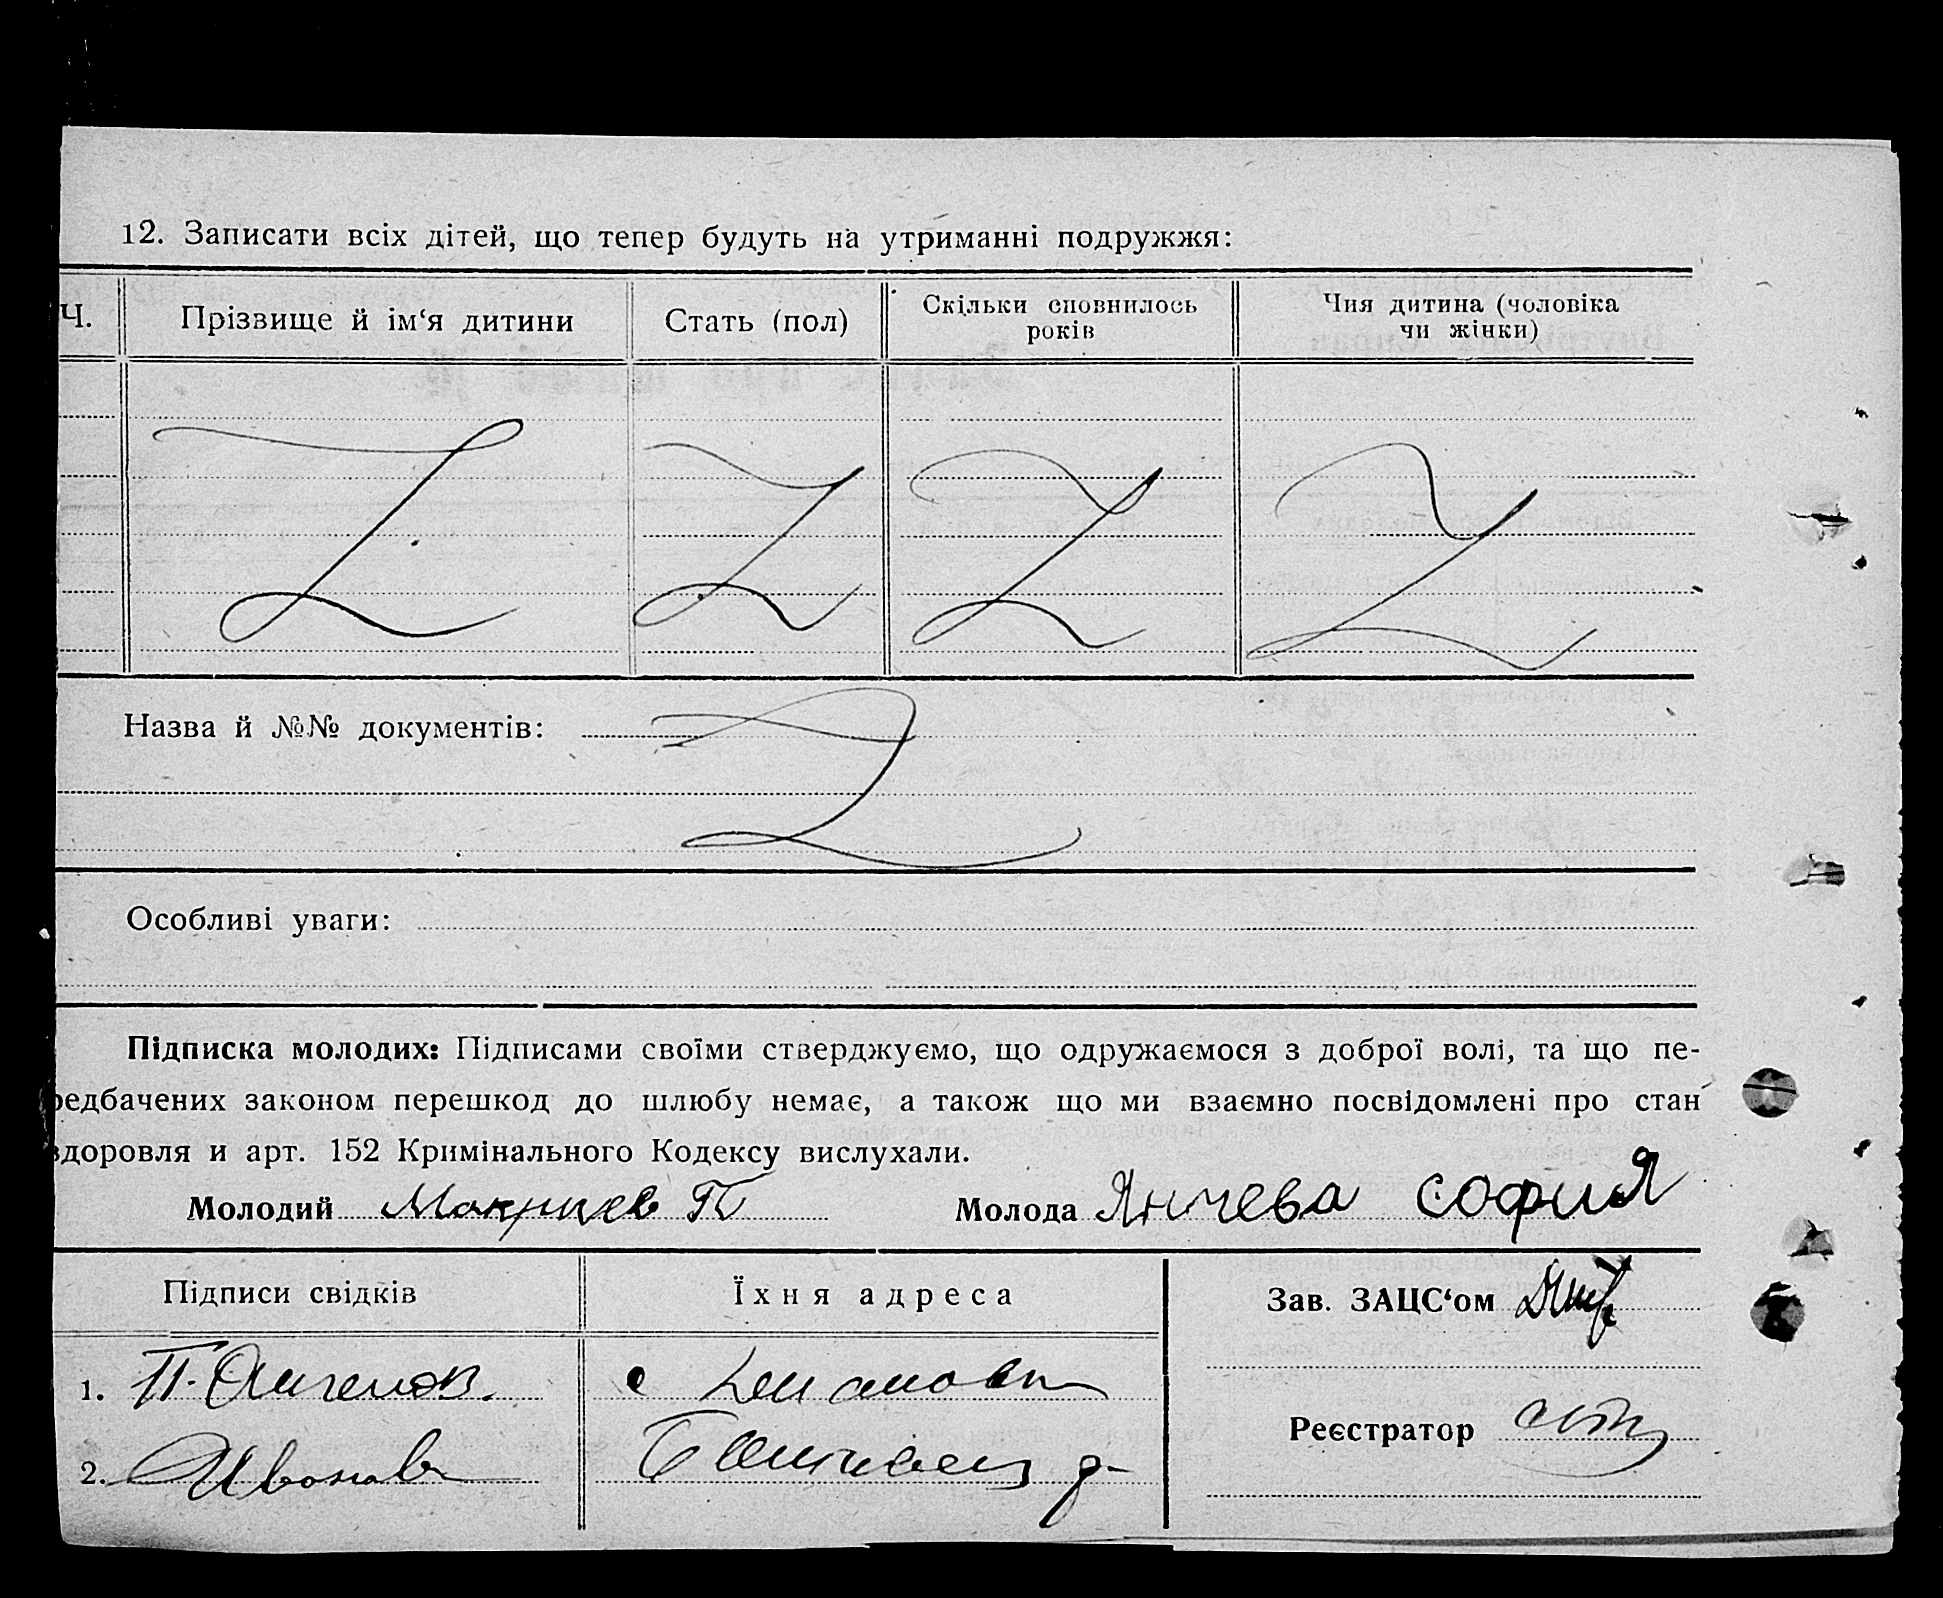 12. Записати всіх дітей, що тепер будуть на утриманні подружжя:
Ч. Прізвище й ім‘я дитини Стать (пол) Скільки сповнилось років Чия дитина (чоловіка чи жінки)
Назва й №№ документів:
Особливі уваги:
Підписка молодих: Підписами своїми стверджуємо, що одружаємося з доброї волі, та що пе-
редбачених законом перешкод до шлюбу немає, а також що ми взаємно посвідомлені про стан
здоровля и арт. 152 Кримінального Кодексу вислухали.
Молодий Макриев П Молода Янчева софиЯ
Підписи свідків Їхня адреса Зав. ЗАЦС‘ом
1. П. с
2. Иванов Реєстратор